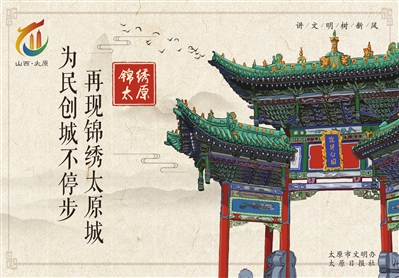 讲文明树新风
山西·太原
锦绣
太原
再现锦绣太原城
为民创城不停步
太原市文明办
太原日报社